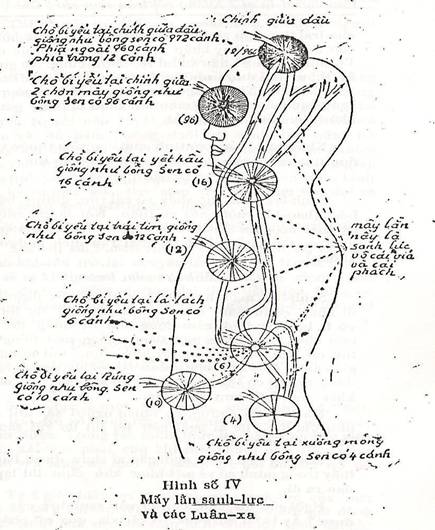 Chính giữa đầu
Chỗ bí yếu tại chính giữa đầu
giống như bông sen có 972 cánh.
Phía ngoài 960 cánh
phía trong 12 cánh
Chỗ bí yếu tại chính giữa
2 chơn mày giống như
bông sen có 96 cánh
(96)
Chỗ bí yếu tại yết hầu
giống như bông sen có
16 cánh
(16)
Chỗ bí yếu tại trái tim giống
như bông sen có 12 cánh
(12)
mấy lằn
nầy là
sanh lực
và cái
phách
Chỗ bí yếu tại lá lách
giống như bông sen có
6 cánh
(6)
Chỗ bí yếu tại Rún
giống như bông sen
có 10 cánh
(10)
(4)
Chỗ bí yếu tại xương mông
giống như bông sen có 4 cánh
Hình số IV
Mấy lằn sanh-lực
và các Luân-xa